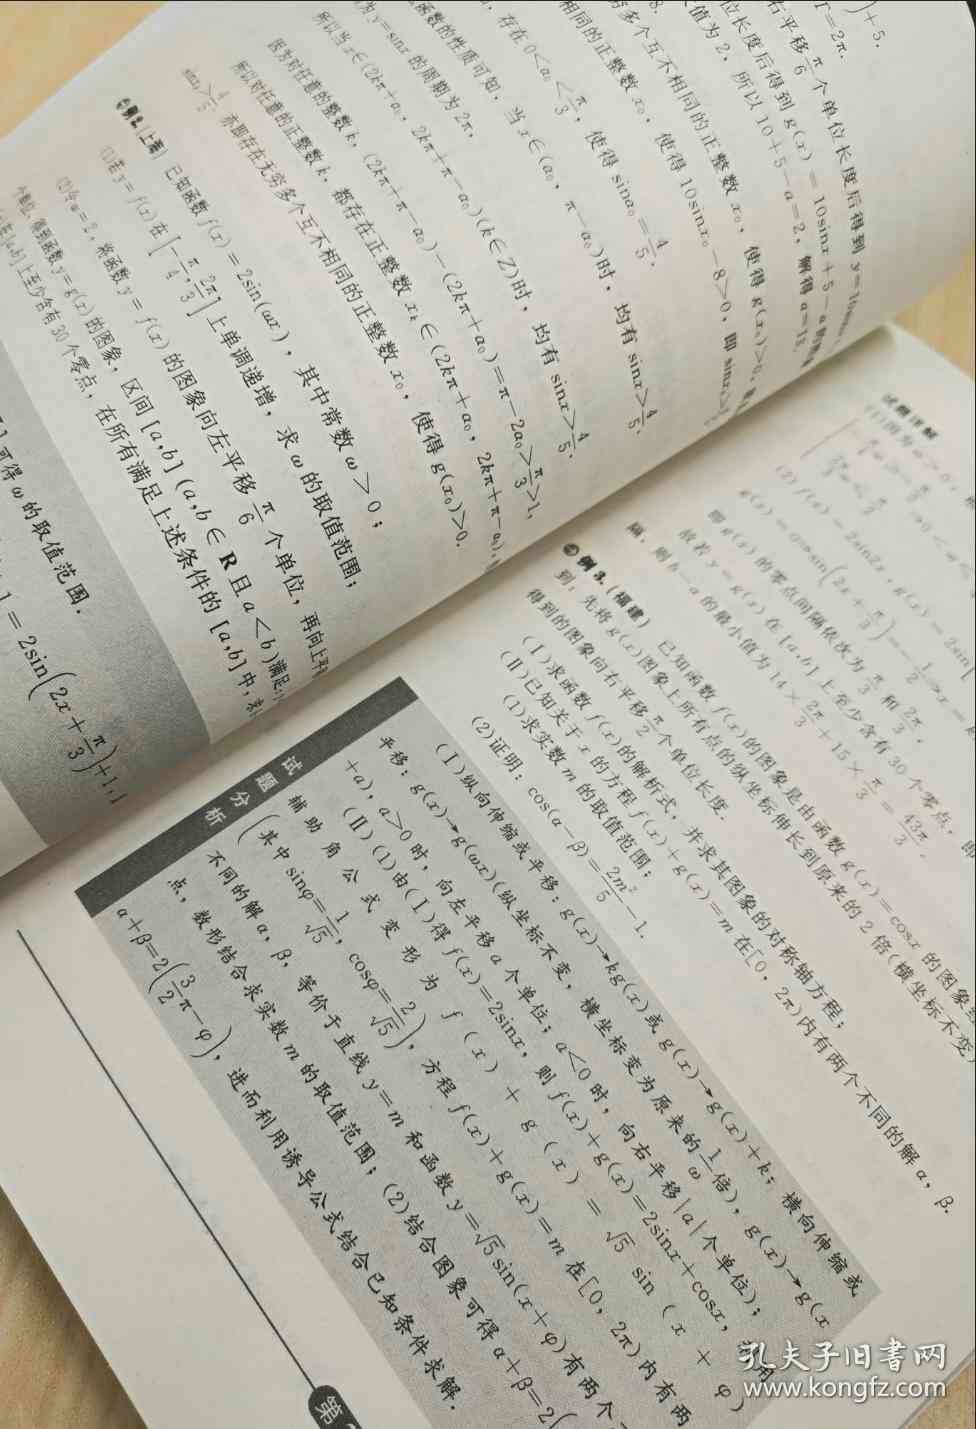 )+5.
T=2π.
右平移π/6个单位长度后得到y=10sinx
位长度后得到g(x)=10sinx+5-a的
值为2，所以10+5-a=2，解得a=13.
多个互不相同的正整数x₀，使得g(x₀)>0，
相同的正整数x₀，使得10sinx₀-8>0，即sinx₀>
存在0<a₀<π/3，使得sina₀=4/5.
函数的性质可知，当x∈(a₀，π-a₀)时，均有sinx>4/5.
为y=sinx的周期为2π，
所以当x∈(2kπ+a₀，2kπ+π-a₀)(k∈Z)时，均有sinx>4/5.
因为对任意的整数k，(2kπ+π-a₀)-(2kπ+a₀)=π-2a₀>π/3>1，
所以对任意的正整数k，都存在正整数xₖ∈(2kπ+a₀，2kπ+π-a₀)，
sinxₖ>4/5，亦即存在无穷多个互不相同的正整数x₀，使得g(x₀)>0.
例2.(上海) 已知函数f(x)=2sin(ωx)，其中常数ω>0；
(1)若y=f(x)在[-π/4,2π/3]上单调递增，求ω的取值范围；
(2)令ω=2，将函数y=f(x)的图象向左平移π/6个单位，再向上平
个单位，得到函数y=g(x)的图象，区间[a,b](a,b∈R且a<b)满足：
[a,b]上至少含有30个零点，在所有满足上述条件的[a,b]中，求
可得ω的取值范围.
1=2sin(2x+π/3)+1,
试题详解
(2)f(x)=2sin2x，g(x)=2sin
g(x)=0⇒sin(2x+π/3)=-1/2⇒x=
即g(x)的零点间隔依次为π/3和2π/3，
故若y=g(x)在[a,b]上至少含有30个零点，
隔，则b-a的最小值为14×2π/3+15×π/3=43π/3.
例3.(福建) 已知函数f(x)的图象是由函数g(x)=cosx的图象经
到：先将g(x)图象上所有点的纵坐标伸长到原来的2倍(横坐标不变)
得到的图象向右平移π/2个单位长度.
(Ⅰ)求函数f(x)的解析式，并求其图象的对称轴方程；
(Ⅱ)已知关于x的方程f(x)+g(x)=m在[0，2π)内有两个不同的解α，β.
(1)求实数m的取值范围；
(2)证明：cos(α-β)=2m²/5-1.
试题分析
(Ⅰ)纵向伸缩或平移：g(x)→kg(x)或g(x)→g(x)+k；横向伸缩或
平移：g(x)→g(ωx)(纵坐标不变，横坐标变为原来的1/ω倍)，g(x)→g(x
+a)，a>0时，向左平移a个单位；a<0时，向右平移|a|个单位)；
(Ⅱ)(1)由(Ⅰ)得f(x)=2sinx，则f(x)+g(x)=2sinx+cosx，利用
辅助角公式变形为f(x)+g(x)=√5sin(x+φ)
(其中sinφ=1/√5，cosφ=2/√5)，方程f(x)+g(x)=m在[0，2π)内有两
不同的解α，β，等价于直线y=m和函数y=√5sin(x+φ)有两个
点，数形结合求实数m的取值范围；(2)结合图象可得α+β=2(
α+β=2(3/2π-φ)，进而利用诱导公式结合已知条件求解.
第
孔夫子旧书网
www.kongfz.com